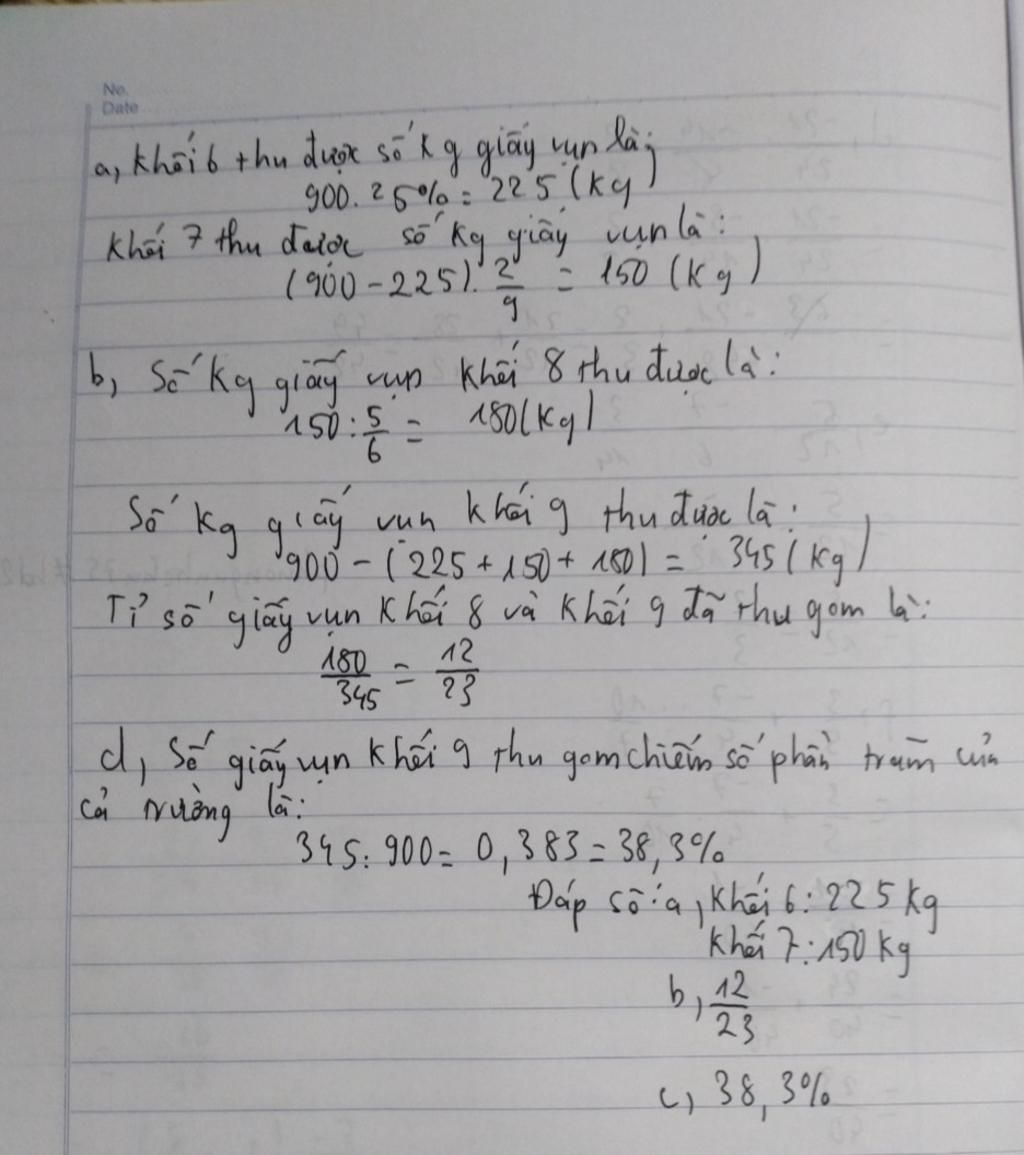 No.
Date
a, khối 6 thu được số kg giấy vụn là:
900. 25% = 225 (kg)
Khối 7 thu được số kg giấy vụn là:
(900 - 225). 2/9 = 150 (kg)
b, Số kg giấy vụn khối 8 thu được là:
150 : 5/6 = 180 (kg)
Số kg giấy vụn khối 9 thu được là:
900 - (225 + 150 + 180) = 345 (kg)
Tỉ số giấy vụn khối 8 và khối 9 đã thu gom là:
180/345 = 12/23
d, Số giấy vụn khối 9 thu gom chiếm số phần trăm của
cả trường là:
345: 900 = 0,383 = 38,3%
Đáp số: a, khối 6: 225 kg
khối 7: 150 kg
b, 12/23
c, 38,3%